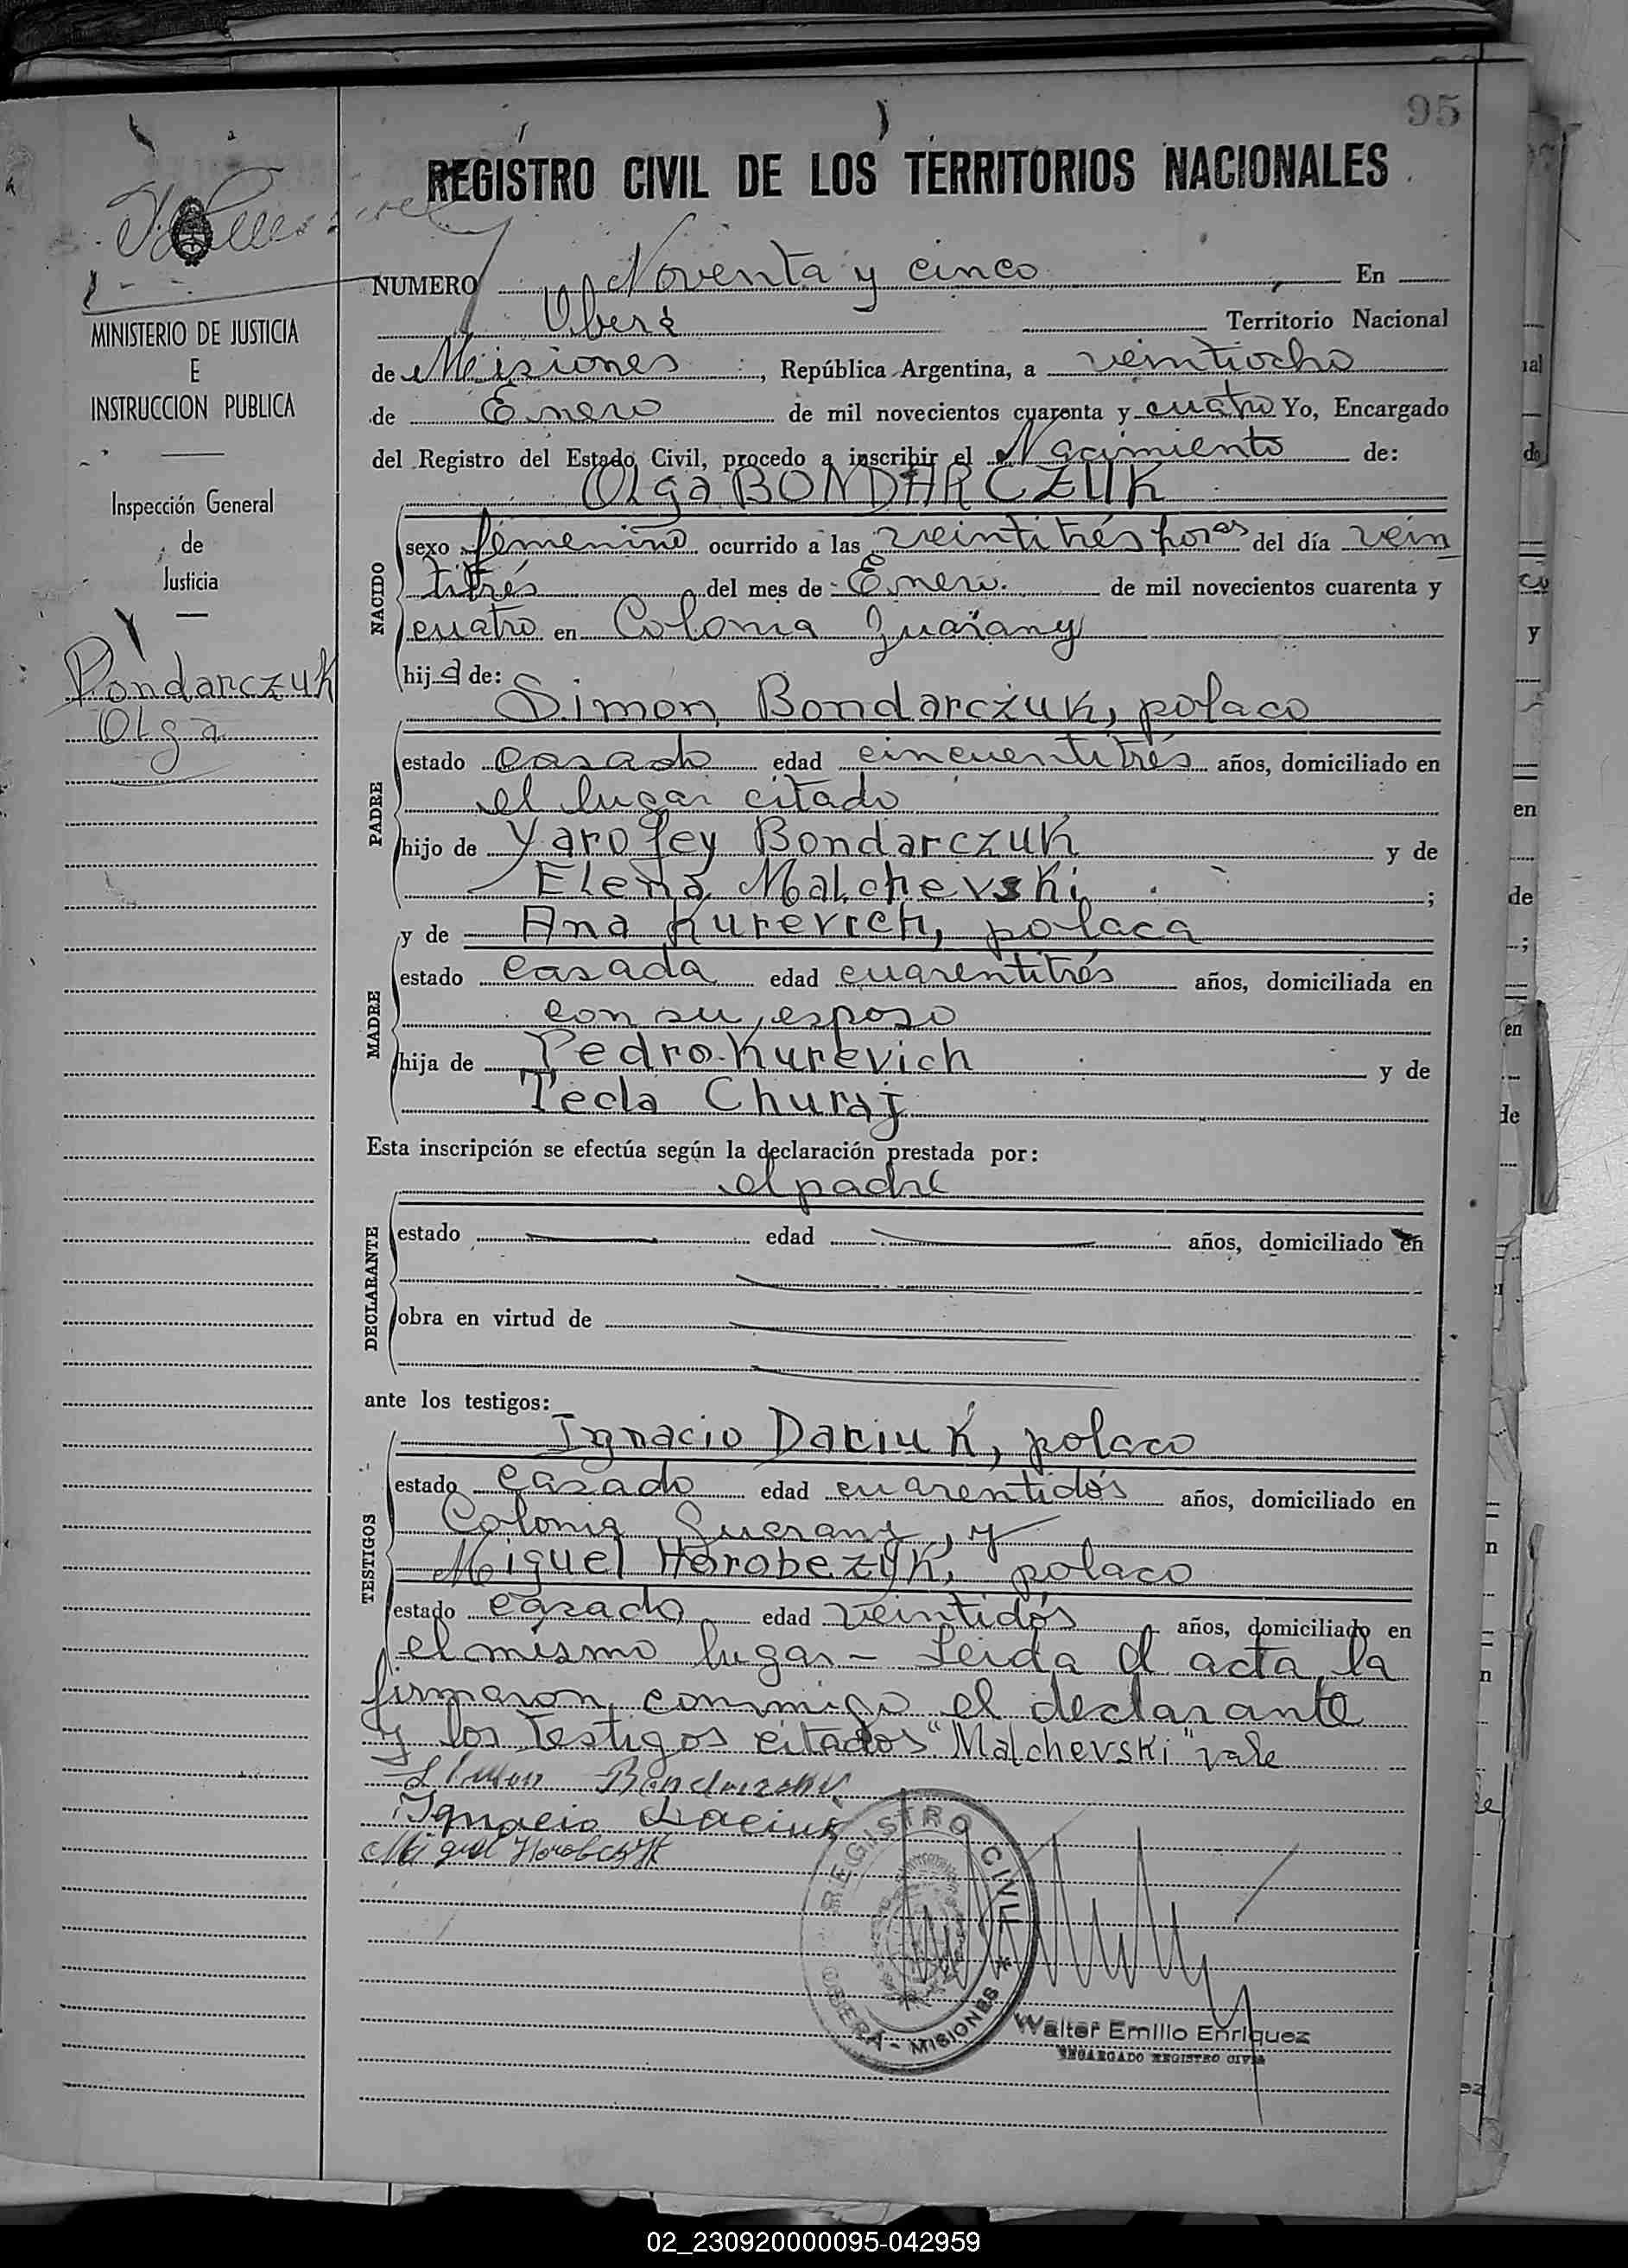 95
REGISTRO CIVIL DE LOS TERRITORIOS NACIONALES
NUMERO Noventa y cinco En
Oberá Territorio Nacional
de Misiones, República Argentina, a veintiocho
de Enero de mil novecientos cuarenta y cuatro Yo, Encargado
del Registro del Estado Civil, procedo a inscribir el Nacimiento de:
Olga BONDARCZUK
NACIDO
sexo femenino ocurrido a las veintitrés horas del día vein
titrés del mes de Enero de mil novecientos cuarenta y
cuatro en Colonia Guarany
hija de:
PADRE
Simon Bondarczuk, polaco
estado casado edad cincuentitrés años, domiciliado en
el lugar citado
hijo de Yarofey Bondarczuk y de
Elena Malchevski ;
y de Ana Kurevich, polaca
MADRE
estado casada edad cuarentitrés años, domiciliada en
con su esposo
hija de Pedro Kurevich y de
Tecla Churaj
Esta inscripción se efectúa según la declaración prestada por:
el padre
DECLARANTE
estado edad años, domiciliado en
obra en virtud de
ante los testigos:
TESTIGOS
Ignacio Daciuk, polaco
estado casado edad cuarentidós años, domiciliado en
Colonia Guarany, y
Miguel Horobczyk, polaco
estado casado edad veintidós años, domiciliado en
el mismo lugar - Leida el acta la
firmaron conmigo el declarante
y los testigos citados "Malchevski" vale
Simon Bondarczuk
Ignacio Daciuk
Miguel Horobczyk
REGISTRO CIVIL
OBERÁ - MISIONES
Walter Emilio Enriquez
ENCARGADO REGISTRO CIVIL
MINISTERIO DE JUSTICIA
E
INSTRUCCION PUBLICA
Inspección General
de
Justicia
Bondarczuk
Olga
02_230920000095-042959